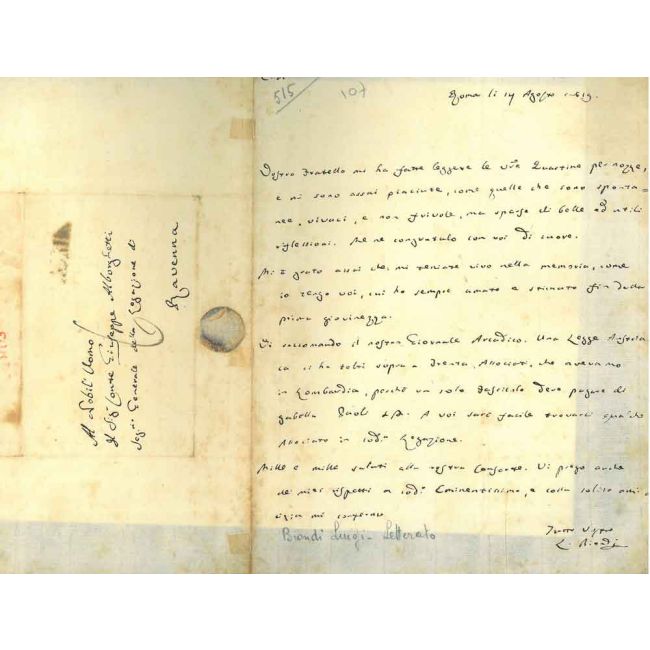 515
107
Roma li 14 Agosto 1819.
Vostro Fratello mi ha fatto leggere le Vre Quartine per nozze,
e mi sono assai piaciute, come quelle che sono sponta-
nee, vivaci, e non frivole, ma sparse di belle ed utili
riflessioni. Me ne congratulo con voi di cuore.
Mi è grato assai che mi teniate vivo nella memoria, come
io tengo voi, cui ho sempre amato e stimato fin dalla
prima giovinezza.
Vi raccomando il nostro Giornale Arcadico. Una Legge Austria
ca ci ha tolti sopra a trenta Associati, che avevamo
in Lombardia, perchè un solo fascicolo deve pagare di
gabella Paoli A voi sarà facile trovarci qualche
Associato in Legazione.
Mille e mille saluti alla vostra Consorte. Vi prego anche
de' miei rispetti a Eminentissimo, e colla solita ami-
cizia mi confermo
Tutto Vostro
L. Biondi
Biondi Luigi - Letterato
Al Nobil Uomo
Il Sig Conte Giuseppe Alborghetti
Segr Generale della Legazione di
Ravenna